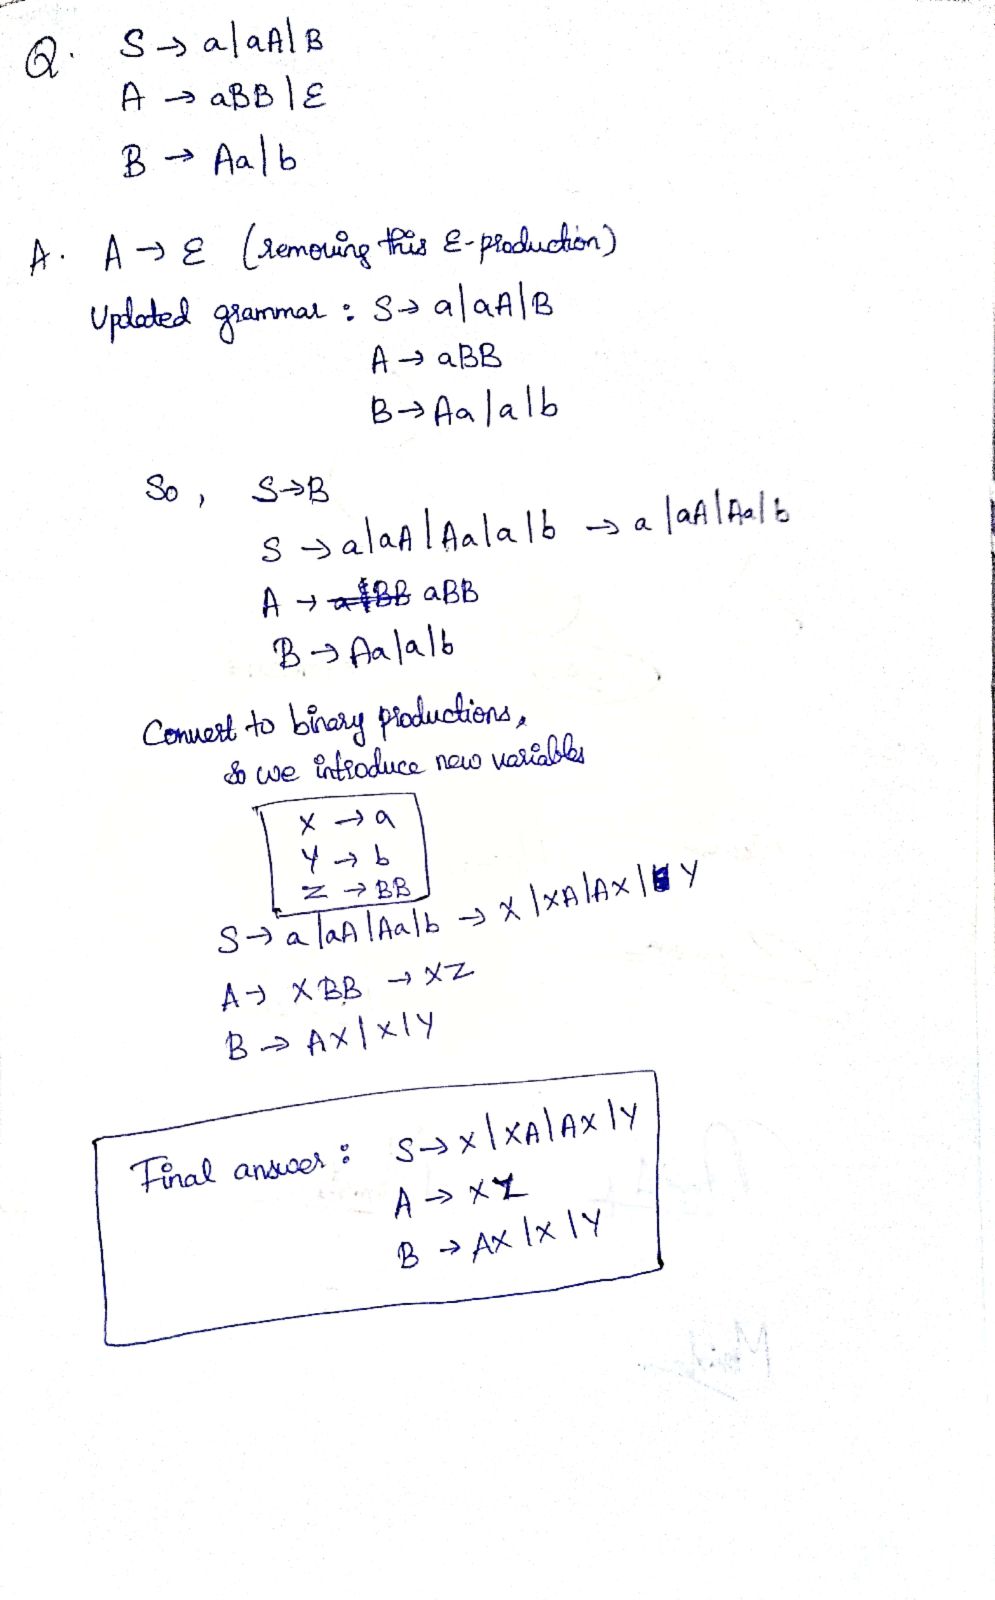 Q. S → a|aA|B
A → aBB|ε
B → Aa|b
A. A → ε (removing this ε-production)
Updated grammar : S → a|aA|B
A → aBB
B → Aa|a|b
So, S→B
S → a|aA|Aa|a|b → a|aA|Aa|b
A → aBB
B → Aa|a|b
Convert to binary productions,
So we introduce new variables
X → a
Y → b
Z → BB
S → a|aA|Aa|b → X|XA|AX|Y
A → XBB → XZ
B → AX|X|Y
Final answer : S → X|XA|AX|Y
A → XZ
B → AX|X|Y